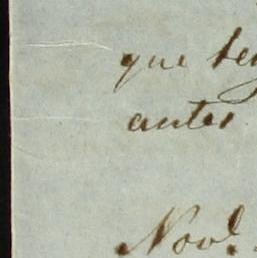 que
antes
Nov.